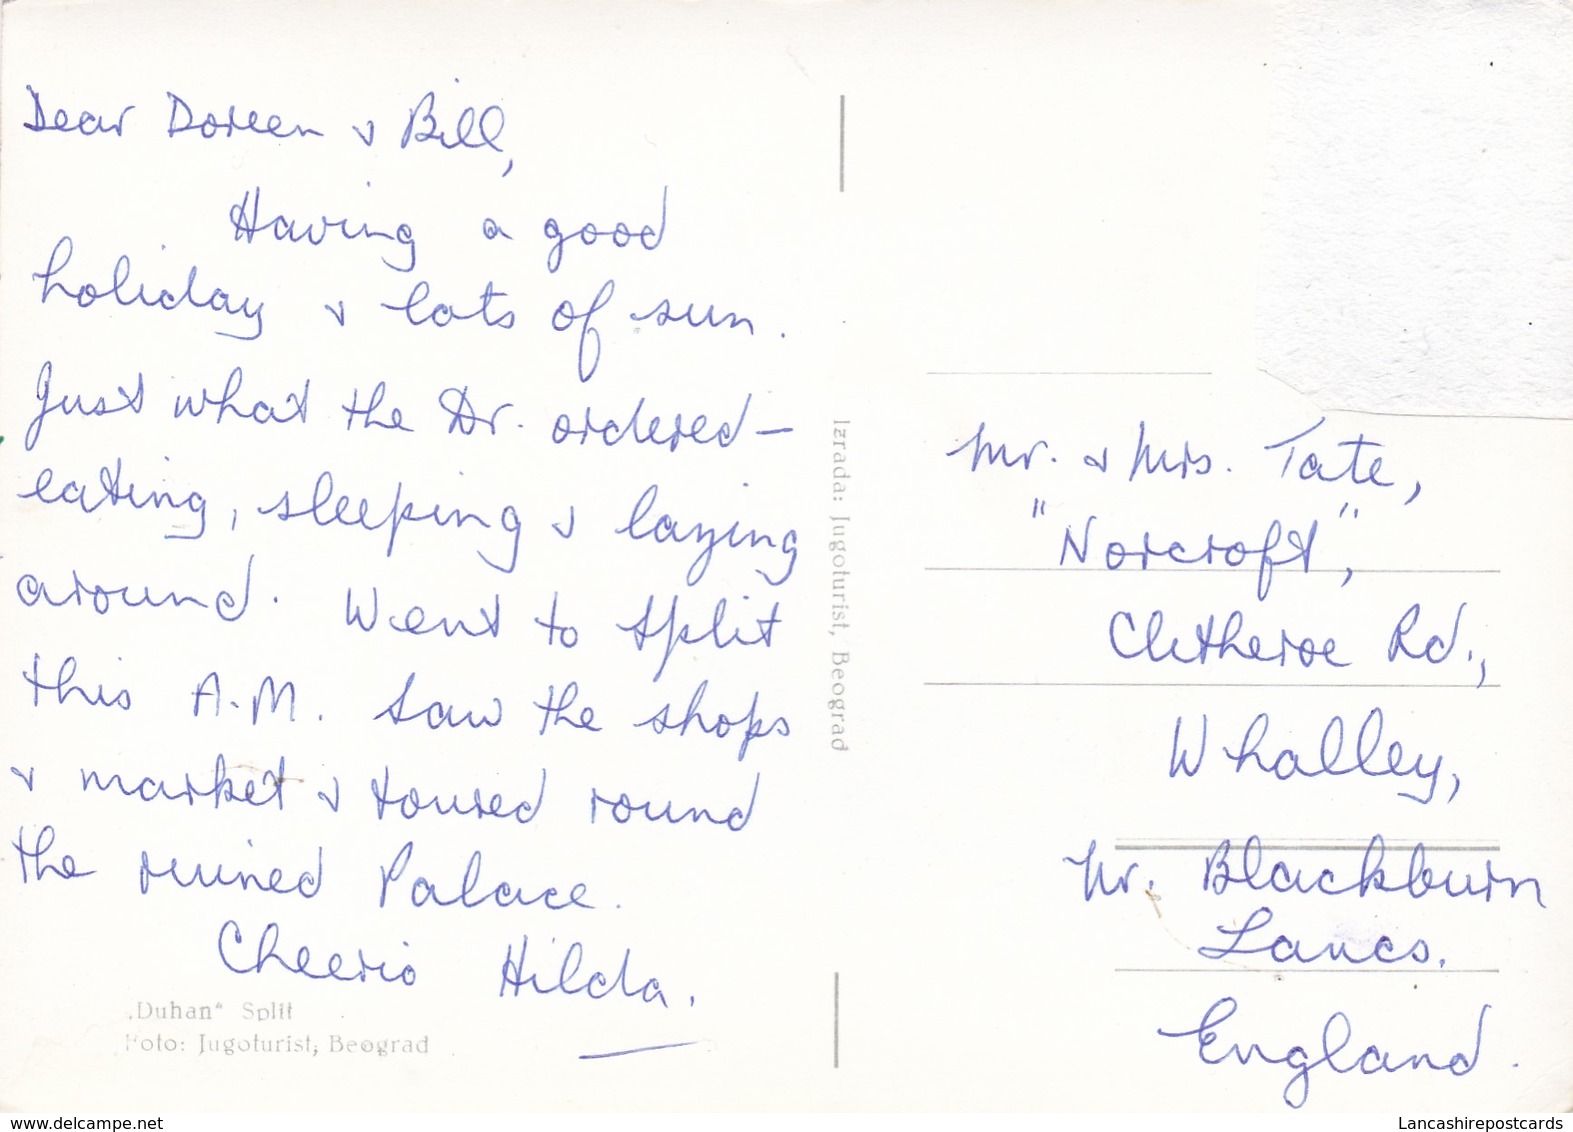 Dear Doreen & Bill,
Having a good
holiday & lots of sun.
Just what the Dr. ordered –
eating, sleeping & lazing
around. Went to Split
this A.M. Saw the shops
& market & toured round
the ruined Palace.
Cheerio Hilda.
„Duhan“ Split
Foto: Jugoturist, Beograd
Izrada: Jugoturist, Beograd
Mr. & Mrs. Tate,
"Norcroft",
Clitheroe Rd.,
Whalley,
Nr. Blackburn
Lancs.
England.
www.delcampe.net
Lancashirepostcards